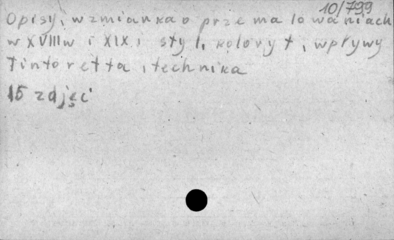 10/799
Opisy, wzmianka o przemalowaniach
w XVIIIw i XIX; styl, koloryt, wpływy
Tintoretta, technika
15 zdjęć